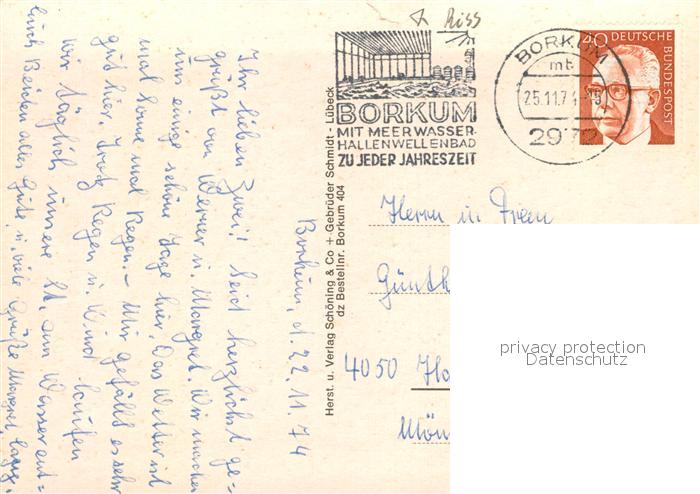 Riss
BORKUM
MIT MEERWASSER-
HALLENWELLENBAD
ZU JEDER JAHRESZEIT
BORKUM
mt
25.11.7
2972
40 DEUTSCHE
BUNDESPOST
Borkum, d. 22.11.74
Ihr lieben Zwei! Seid herzlichst ge-
grüßt von Werner u. Margret. Wir machen
uns einige schöne Tage hier. Das Wetter ist
mal Sonne mal Regen. – Mir gefällt es sehr
gut hier. Trotz Regen u. Wind laufen
wir täglich unsere St. am Wasser ent-
lang
Euch Beiden alles Gute, u. viele Grüße Margret
Herst. u. Verlag Schöning & Co + Gebrüder Schmidt - Lübeck
dz Bestellnr. Borkum 404
Herrn u. Frau
Günth
4050
Mön
privacy protection
Datenschutz